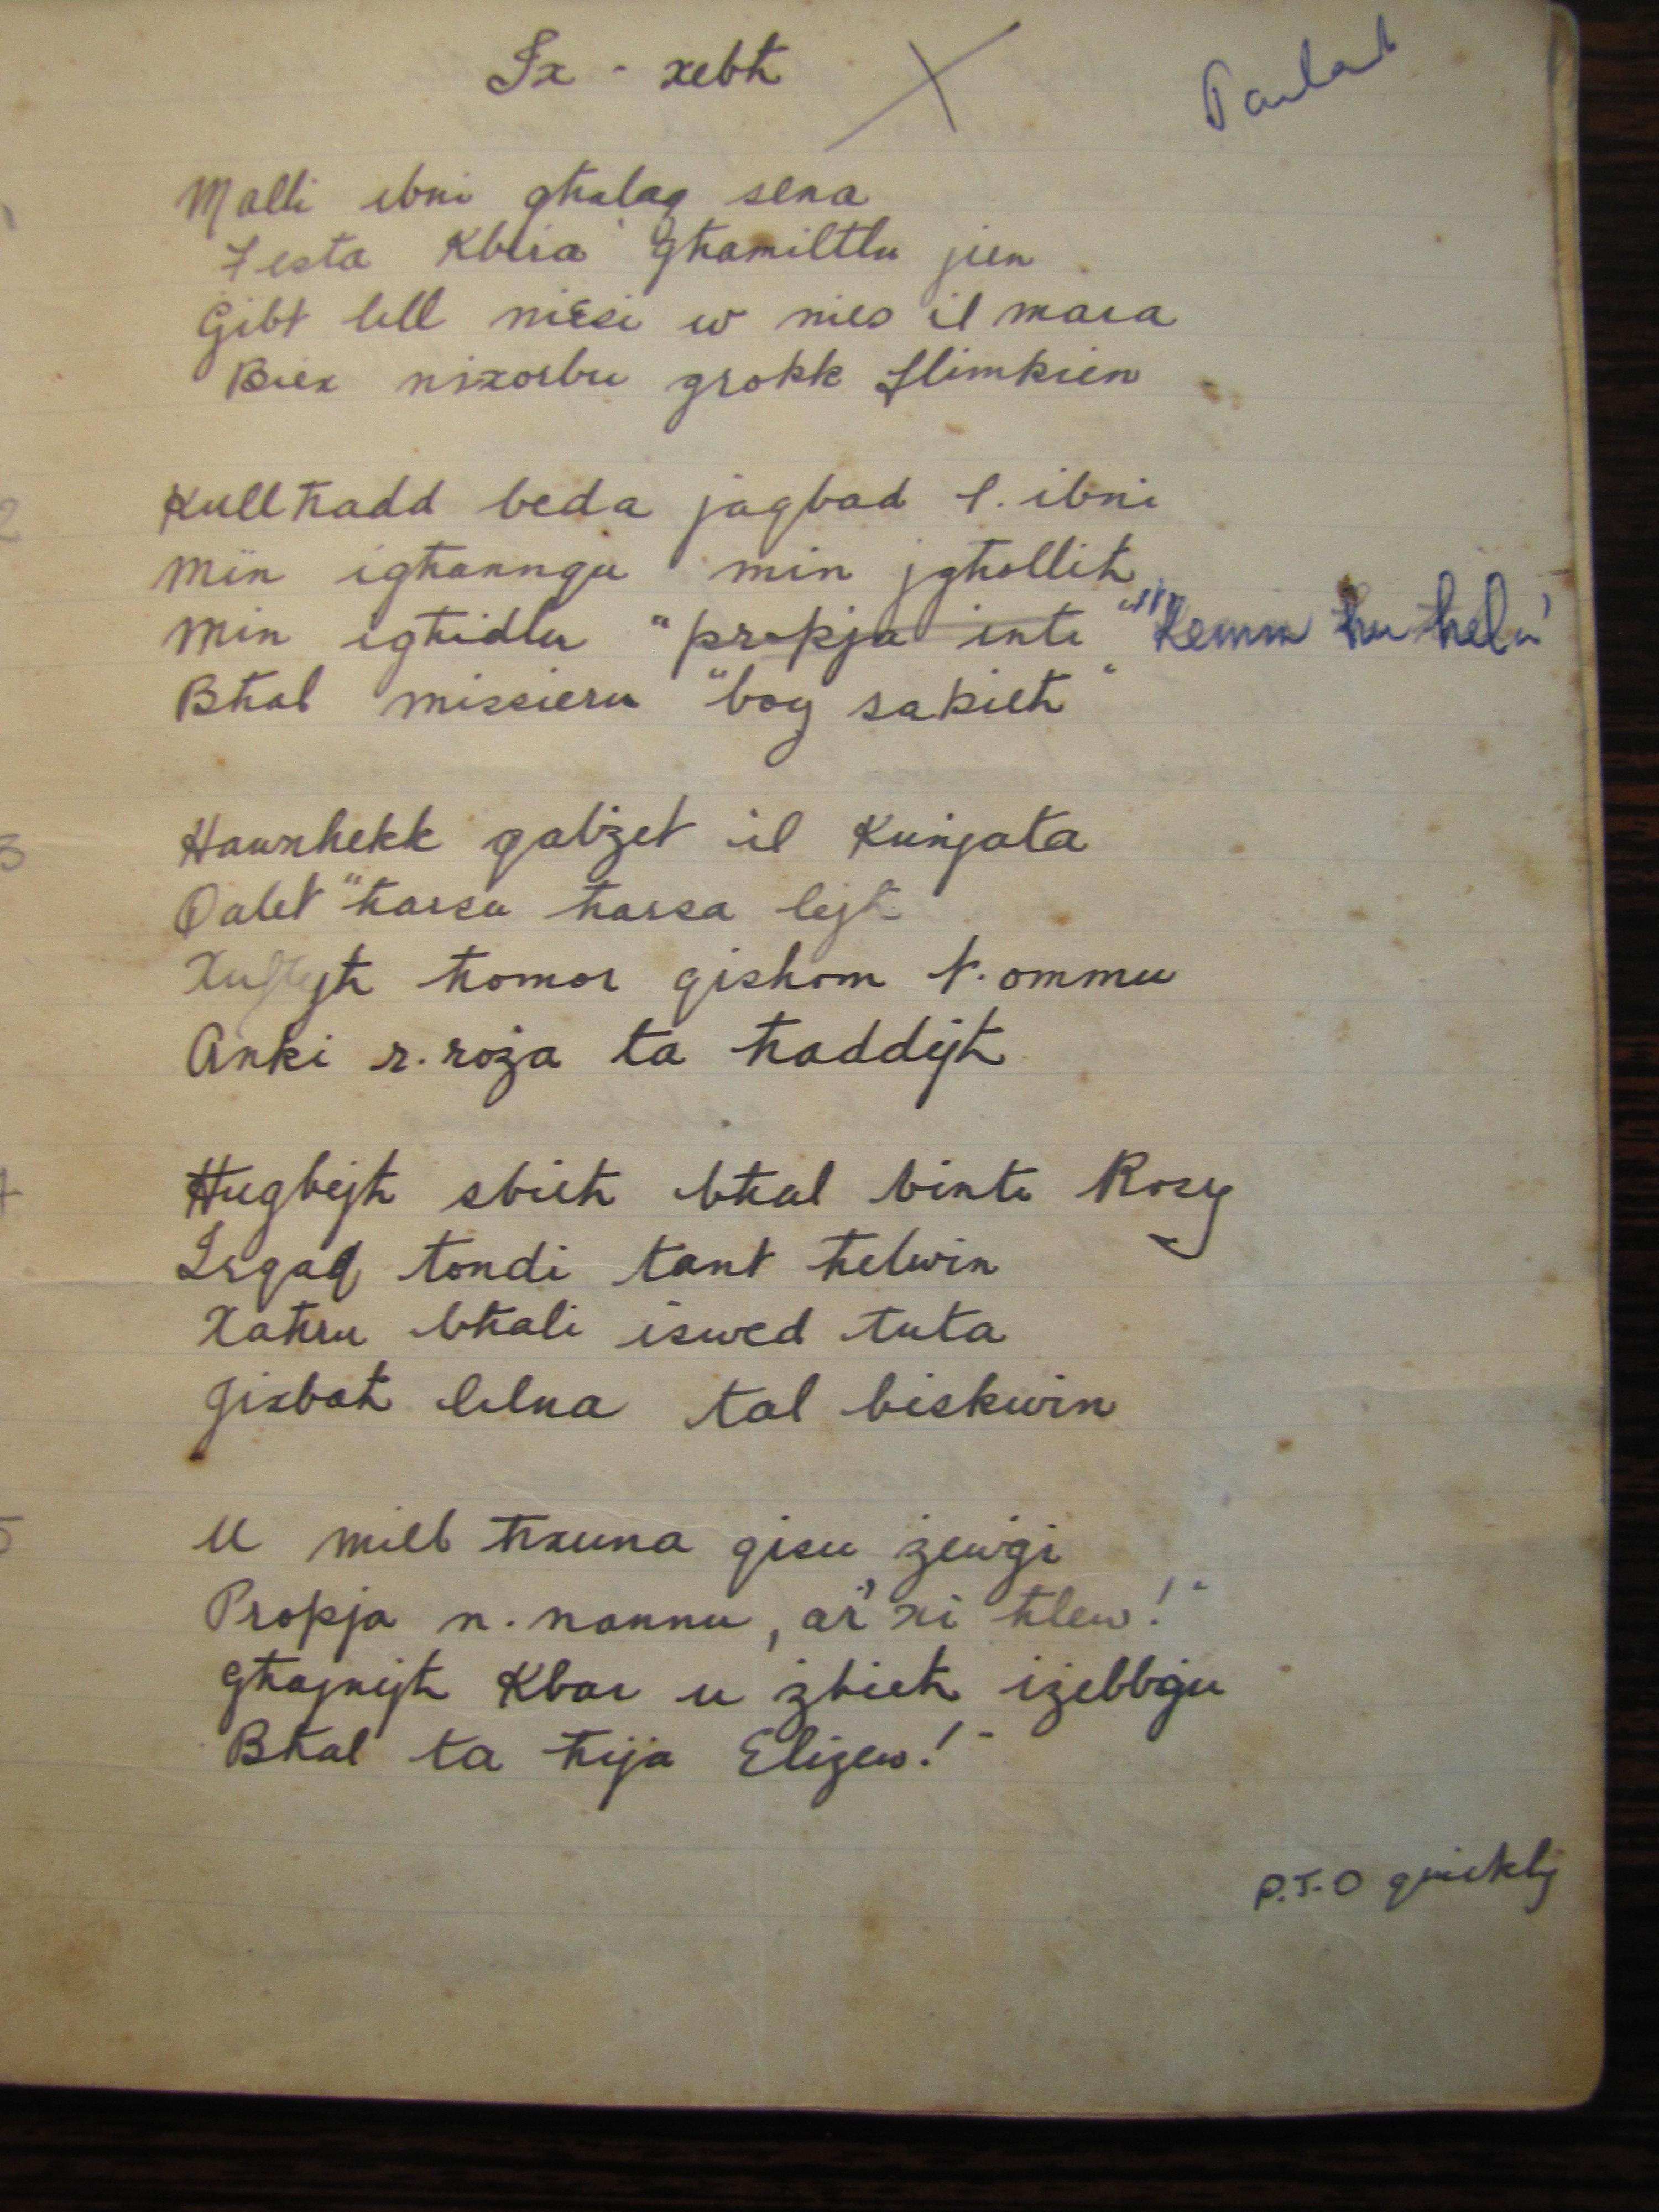 Ix - xebħ
Malli ibni għalaq sena
Festa Kbira għamiltlu jien
Ġibt lell niesi w nies il mara
Biex nixorbu grokk flimkien
2
Kullħadd beda jaqbad l. ibni
Min igħannqu min jgħollih
Min igħidlu " propja inti " "Kemm hu ħelu"
Bħal missieru "boy sabieħ"
3
Hawnhekk qabżet il Kunjata
Qalet "ħarsu ħarsa lejh
Xuftejh ħomor qishom t. ommu
Anki r. roża ta ħaddejh
4
Ħuġbejh sbieħ bħal binti Rosy
Irqaq tondi tant ħelwin
Xahru bħali iswed tuta
Jixbah lilna tal biskwin
5
U mill ħxuna qisu żewġi
Propja n. nannu, ar" xi ħlew!"
Għajnejh Kbar u żbieħ iżebbġu
Bħal ta ħija Eliżew!"
P.T.O quickly